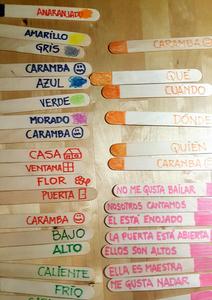 ANARANJADO
AMARILLO
GRIS
CARAMBA
AZUL
VERDE
MORADO
CARAMBA
CASA
VENTANA
FLOR
PUERTA
CARAMBA
BAJO
ALTO
CALIENTE
FRÍO
CARAMBA
QUÉ
CUANDO
DÓNDE
QUIEN
CARAMBA
NO ME GUSTA BAILAR
NOSOTROS CANTAMOS
EL ESTÁ ENOJADO
LA PUERTA ESTÁ ABIERTA
ELLOS SON ALTOS
ELLA ES MAESTRA
ME GUSTA NADAR